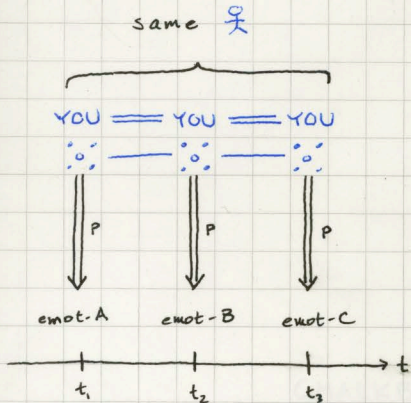 same
YOU = YOU = YOU
P P P
emot-A emot-B emot-C
t
t₁ t₂ t₃